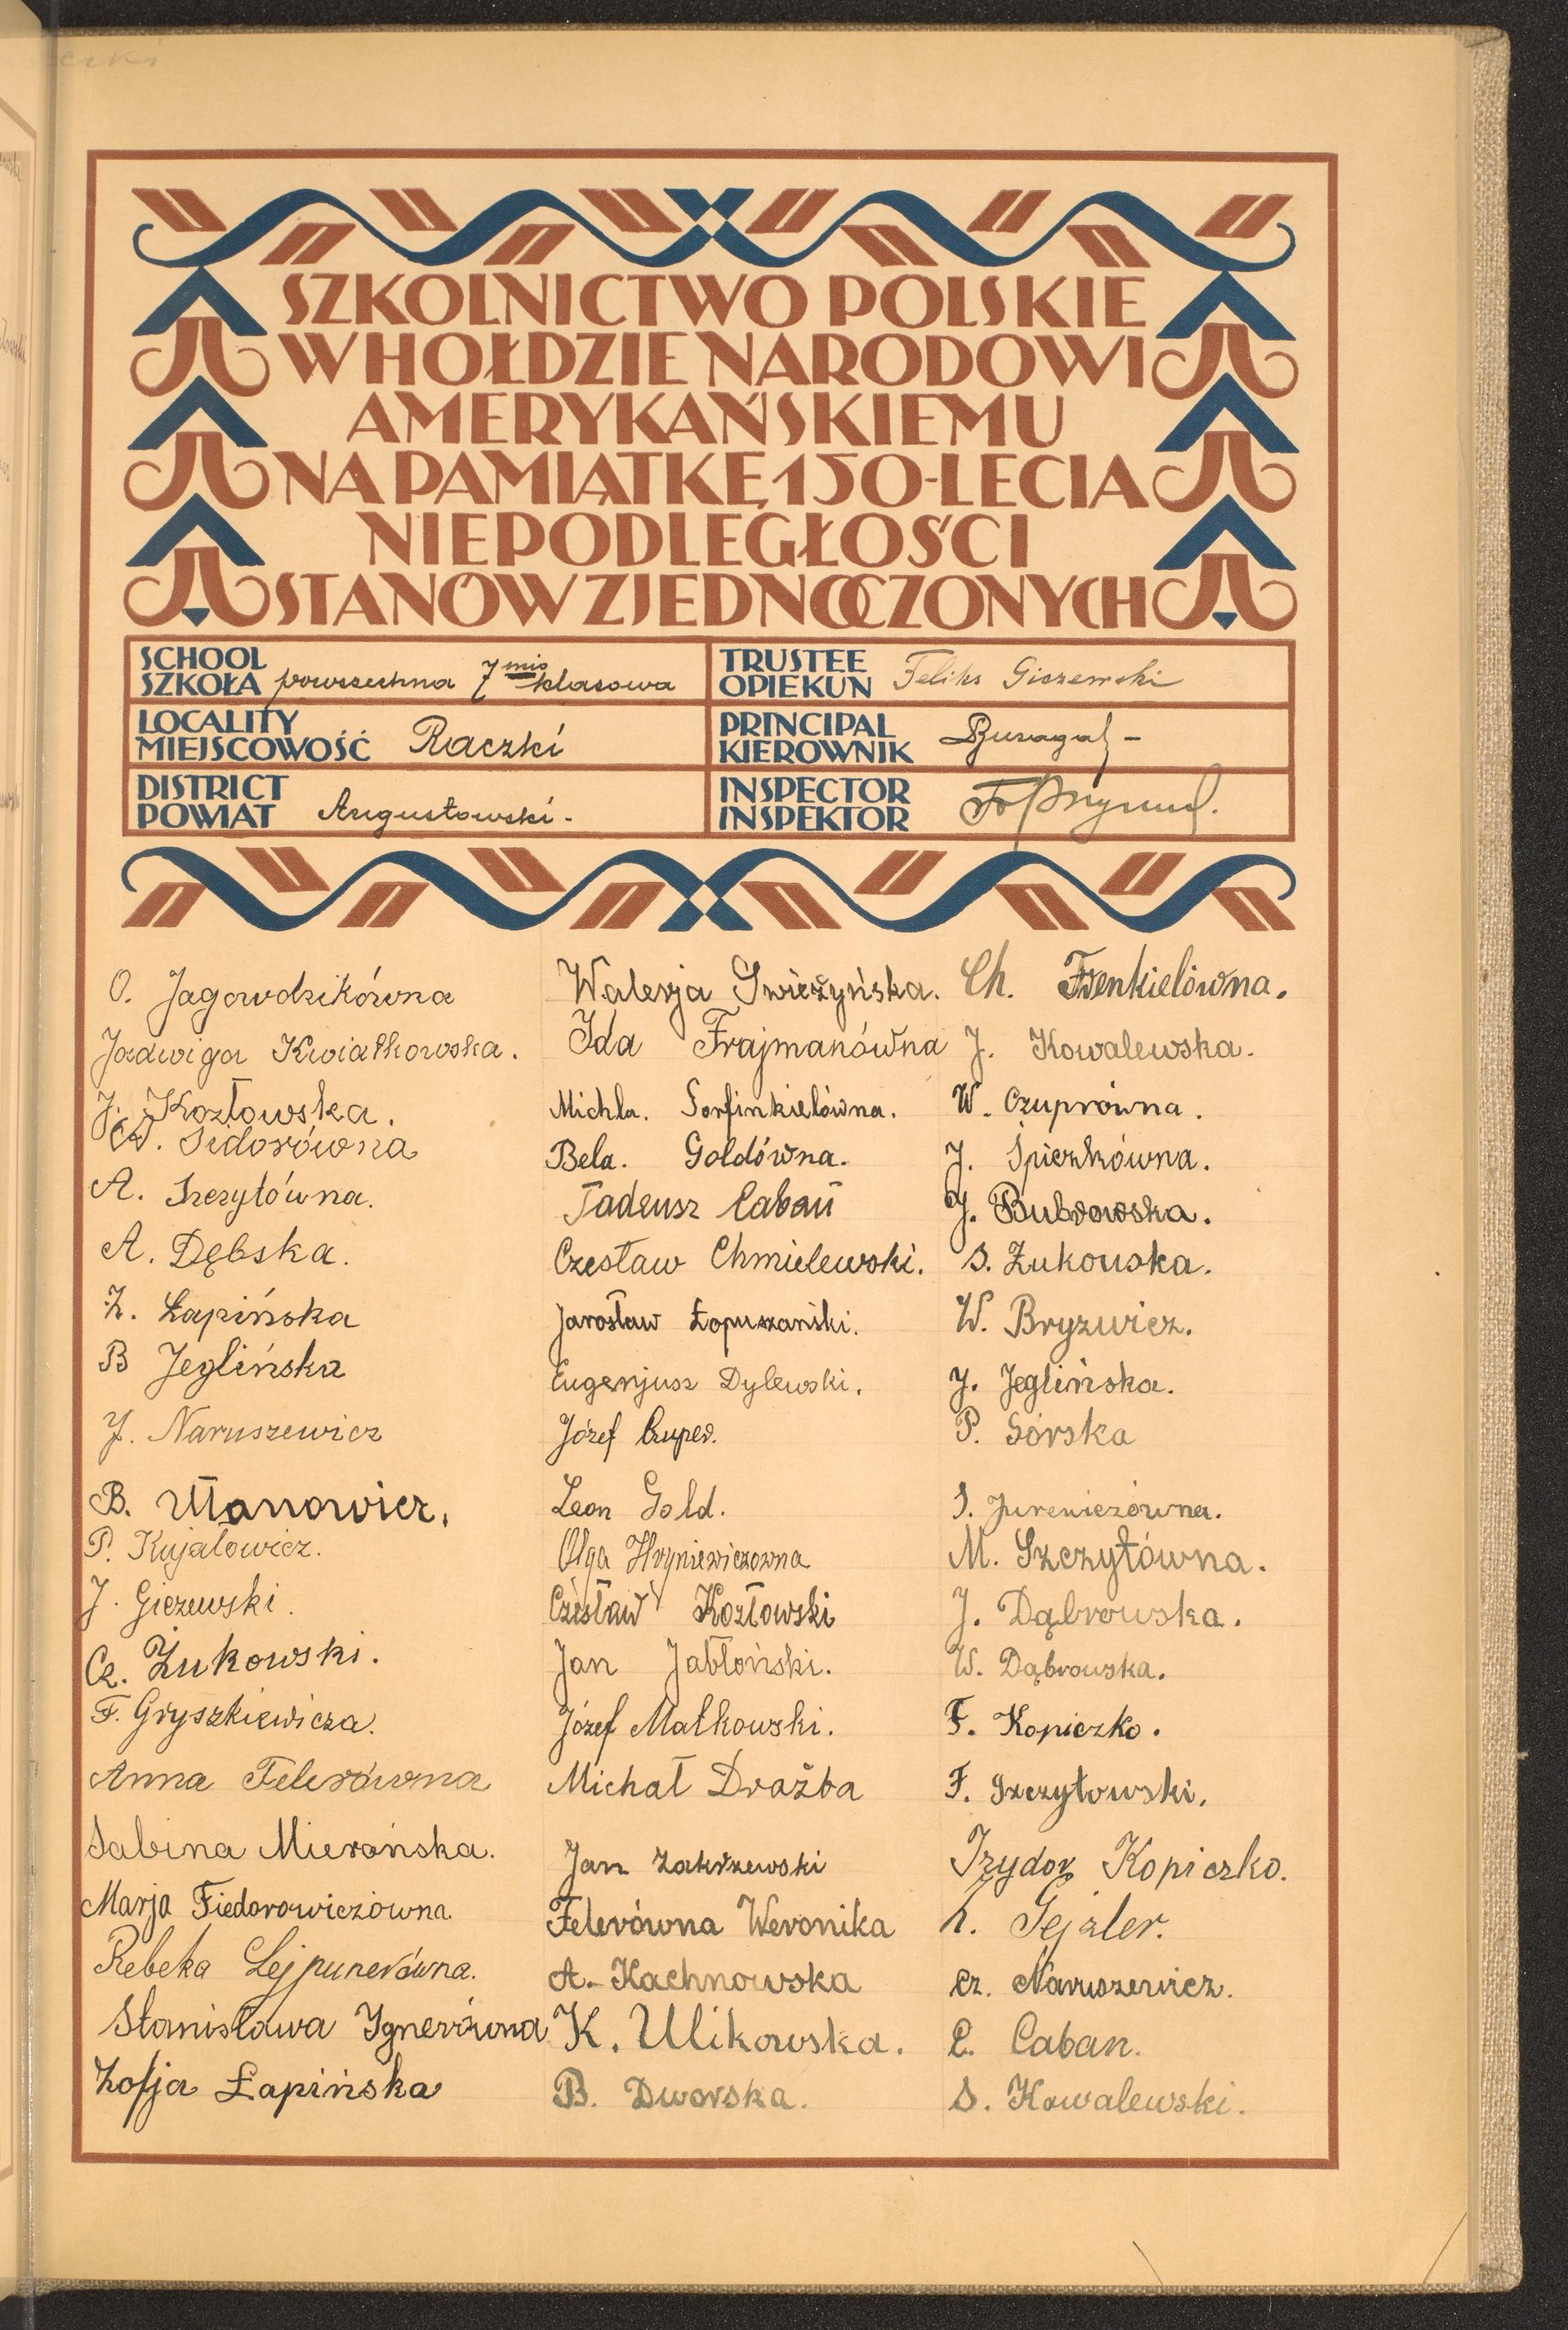 SZKOLNICTWO POLSKIE
W HOŁDZIE NARODOWI
AMERYKAŃSKIEMU
NA PAMIĄTKĘ 150-LECIA
NIEPODLEGŁOŚCI
STANÓW ZJEDNOCZONYCH
SCHOOL
SZKOŁA powszechna 7mio klasowa
TRUSTEE
OPIEKUN Feliks Giszewski
LOCALITY
MIEJSCOWOŚĆ Raczki
PRINCIPAL
KIEROWNIK
DISTRICT
POWIAT Augustowski.
INSPECTOR
INSPEKTOR
O. Jagowdzikówna
Jadwiga Kwiatkowska.
J. Kozłowska.
W. Sidorówna
A. Szczytówna.
A. Dębska.
Z. Łapińska
B Jeglińska
J. Naruszewicz
B. Ułanowicz.
P. Kujałowicz.
J. Giczewski.
Cz. Żukowski.
F. Gryszkiewicza.
Anna Felerówna
Sabina Mierońska.
Marja Fiedorowiczówna
Rebeka Lejpunerówna.
Stanisława Ygnerówna
Zofja Łapińska
Walerja Świeżyńska.
Ida Frajmanówna
Michla. Sorfinkielówna.
Bela. Goldówna.
Tadeusz Caban
Czesław Chmielewski.
Jarosław Łopuszański.
Eugenjusz Dylewski.
Józef Czuper.
Leon Gold.
Olga Hryniewiczowna
Czesław Kozłowski
Jan Jabłoński.
Józef Małkowski.
Michał Drażba
Jan Zakrzewski
Felerówna Weronika
A. Kachnowska
K. Ulikowska.
B. Dworska.
Ch. Frenkielówna.
J. Kowalewska.
W. Czuprówna.
J. Śpiczkówna.
J. Bubrowska.
S. Żukowska.
W. Bryzwicz.
J. Jeglińska.
P. Górska
S. Jurewiczówna.
M. Szczytówna.
J. Dąbrowska.
W. Dąbrowska.
F. Kopiczko.
F. Szczytowski.
Izydor Kopiczko.
Gejzler.
Cz. Naruszewicz.
C. Caban.
S. Kowalewski.